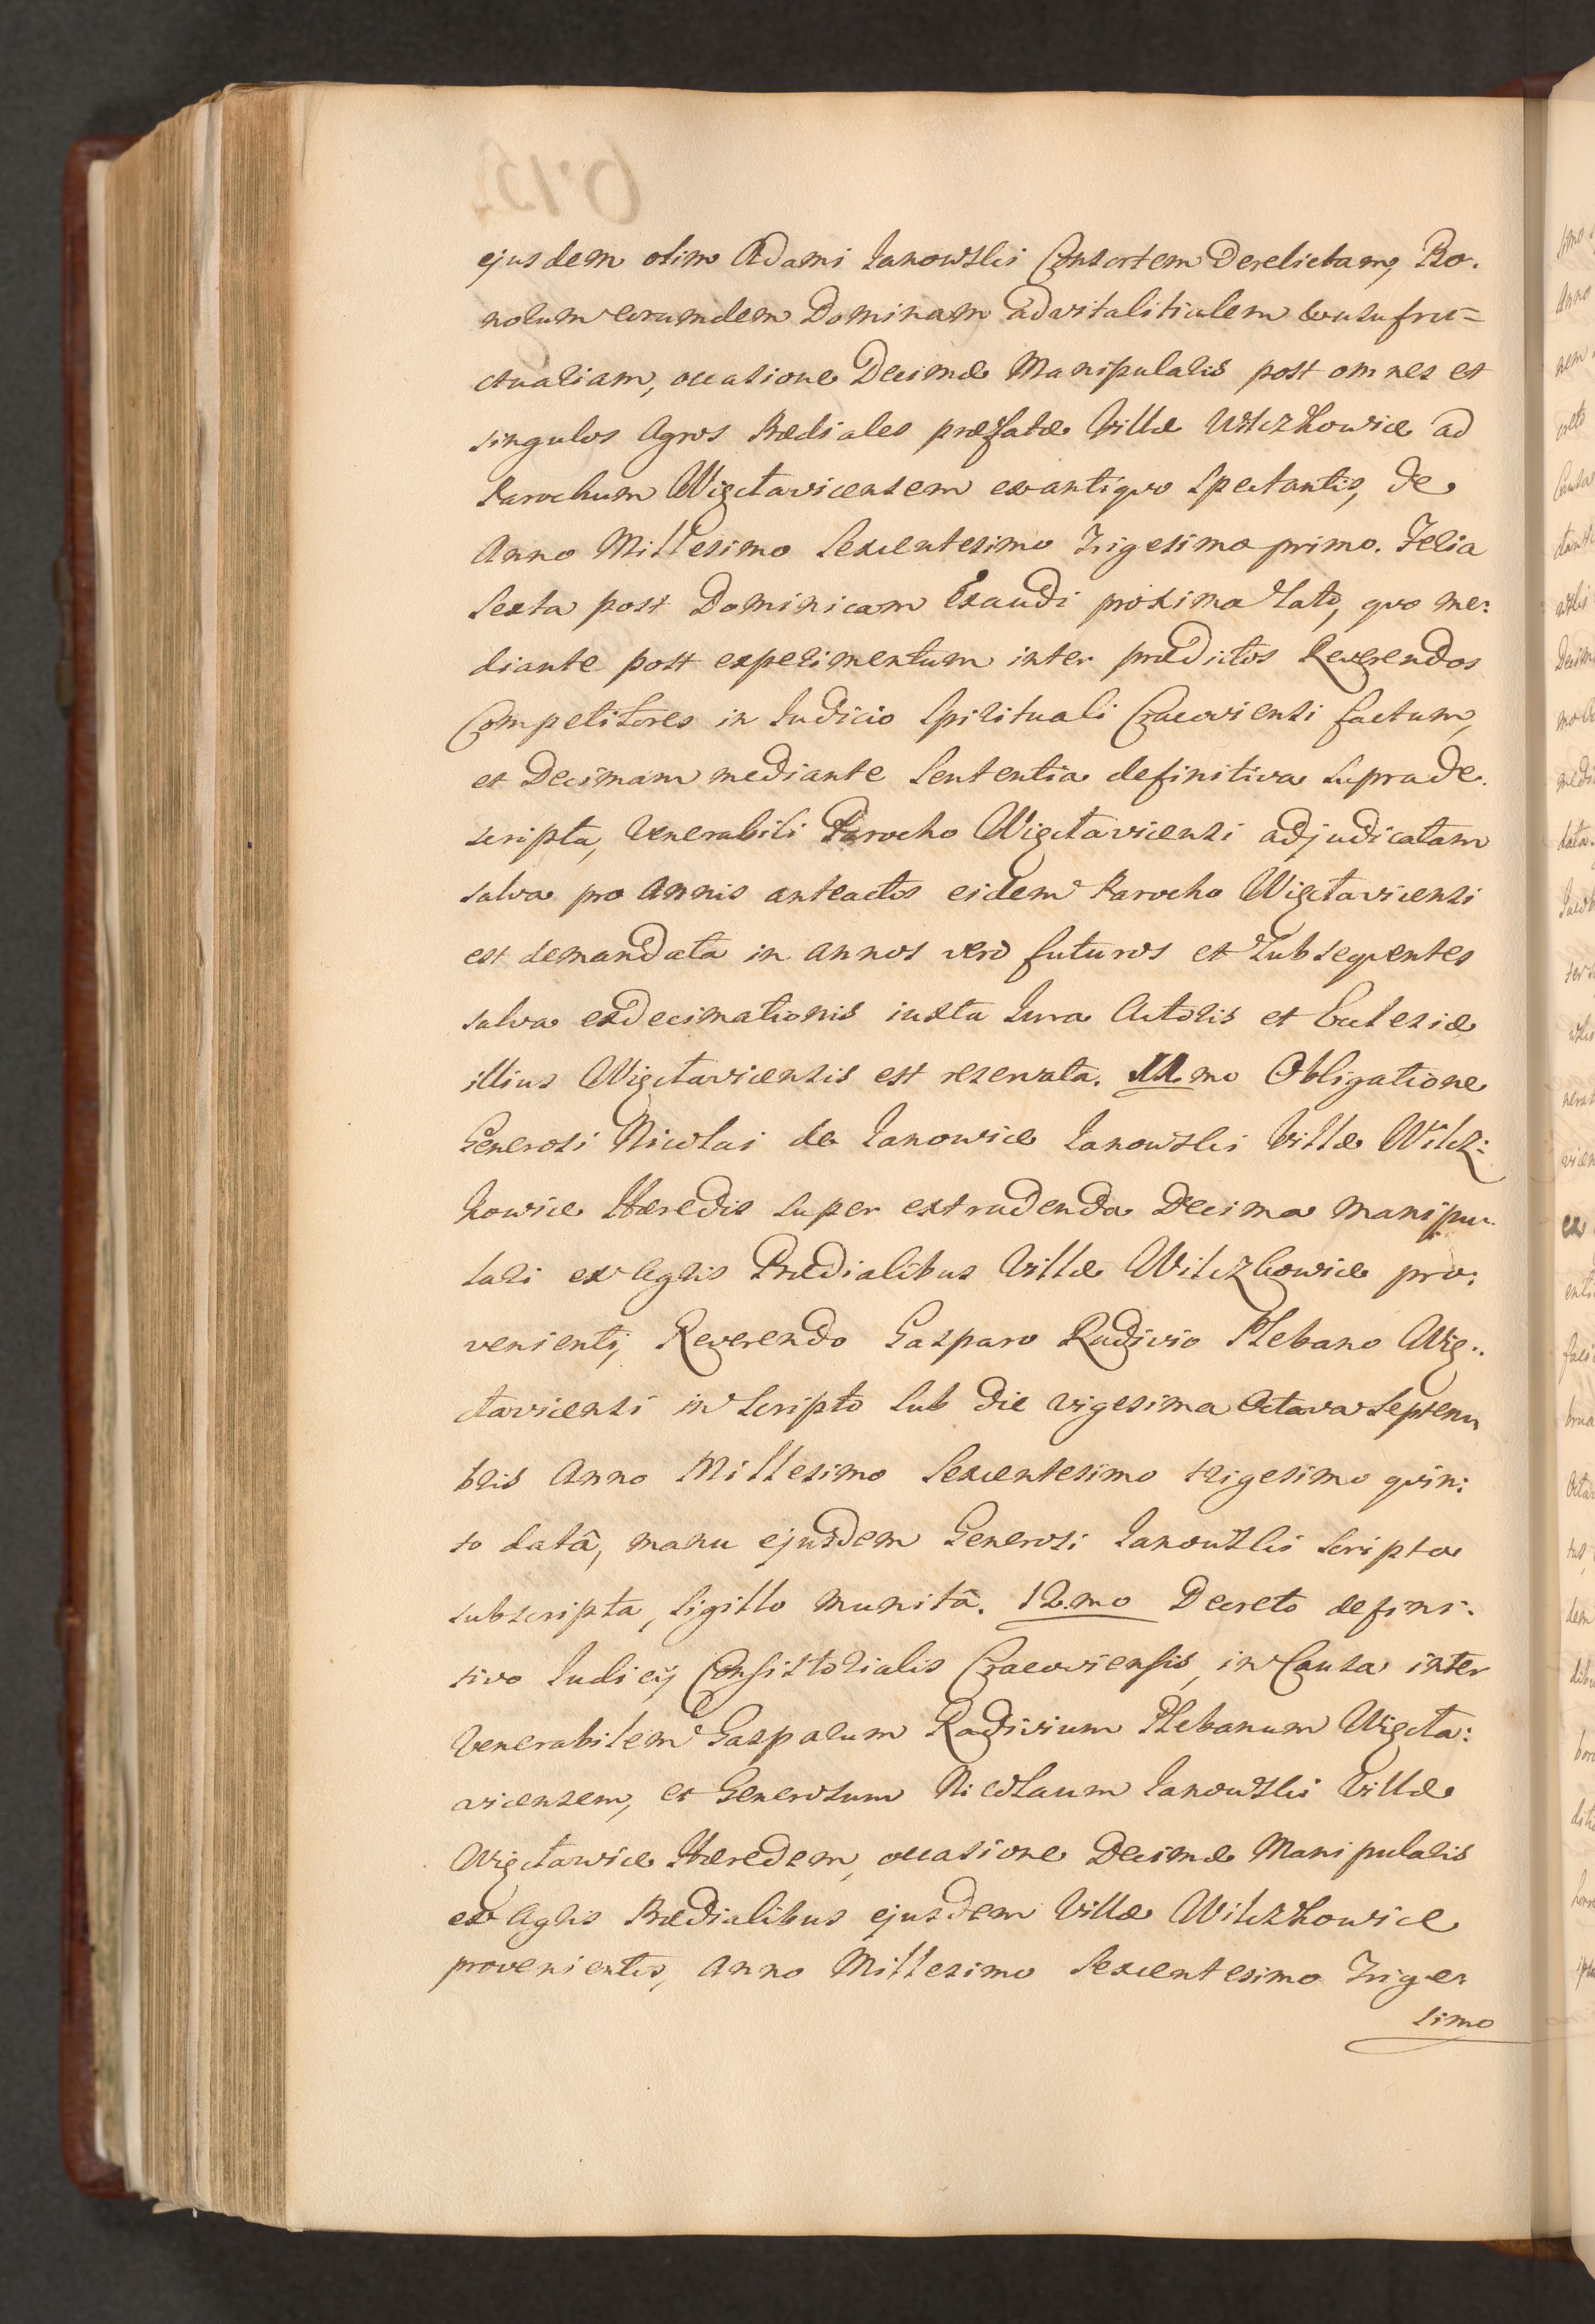 ejusdem olim Adami Janowski Consortem Derelictam, Bo-
norum eorumdem Dominam advitalitialem usufru=
ctuariam, occasione Decimæ Manipularis post omnes et
singulos Agros Prædiales præfatæ Villæ Wilczkowice ad
Parochum Więctavicensem ex antiquo Spectantis, de
Anno Millesimo Sexcentesimo Trigesimo primo. Feria
Sexta post Dominicam Exaudi proxima lato, quo me:
diante post experimentum inter prædictos Reverendos
Competitores in Judicio Spirituali Cracoviensi factum,
et Decimam mediante Sententia definitiva suprade-
scripta, Venerabili Parocho Więctavicensi adjudicatam
salva pro Annis anteactis eidem Parocho Więctavicensi
est demandata in annos vero futuros et Subsequentes
salva exdecimationis iuxta Jura Actoris et Ecclesiæ
illius Więctavicensis est reservata. 11.mo Obligatione
Generosi Nicolai de Janowice Janowski Villæ Wilcz:
kowice Hæredis super extradenda Decima Manipu-
lari ex Agris Prædialibus Villæ Wilczkowice pro:
venienti, Reverendo Gasparo Radivio Plebano Wię:
ctavicensi in Scripto Sub die vigesima Octava Septem
bris Anno Millesimo Sexcentesimo trigesimo quin:
to datâ, manu ejusdem Generosi Janowski Scripta
subscripta, Sigillo munitâ. 12.mo Decreto defini-
tivo Judicij Consistorialis Cracoviensis, in Causa inter
Venerabilem Gasparum Radivium Plebanum Więcta:
vicensem, et Generosum Nicolaum Janowski Villæ
Więctawice Hæredem, occasione Decimæ Manipularis
ex Agris Prædialibus ejusdem Villæ Wilczkowice
provenientis, Anno Millesimo Sexcentesimo Trige-
simo